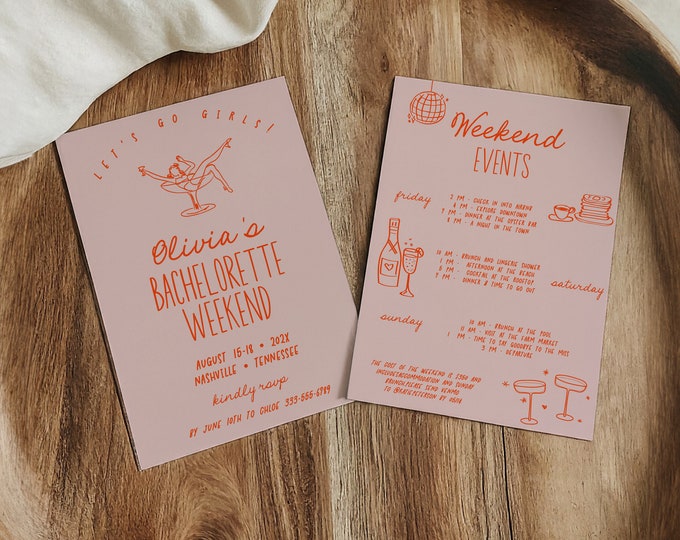 LET'S GO GIRLS!
Olivia's
BACHELORETTE
WEEKEND
AUGUST 15-18 • 202X
NASHVILLE • TENNESSEE
kindly rsvp
BY JUNE 10TH TO CHLOE 333-555-6789
Weekend
EVENTS
friday
3 PM - CHECK IN INTO AIRBNB
4 PM - EXPLORE DOWNTOWN
7 PM - DINNER AT THE OYSTER BAR
8 PM - A NIGHT IN THE TOWN
10 AM - BRUNCH AND LINGERIE SHOWER
1 PM - AFTERNOON AT THE BEACH
5 PM - COCKTAIL AT THE ROOFTOP
7 PM - DINNER & TIME TO GO OUT
saturday
sunday
10 AM - BRUNCH AT THE POOL
11 AM - VISIT AT THE FARM MARKET
1 PM - TIME TO SAY GOODBYE TO THE MISS
3 PM - DEPARTURE
THE COST OF THE WEEKEND IS $350 AND
INCLUDES ACCOMMODATION AND SUNDAY
BRUNCH. PLEASE SEND VENMO
TO @KATIEPETERSON BY